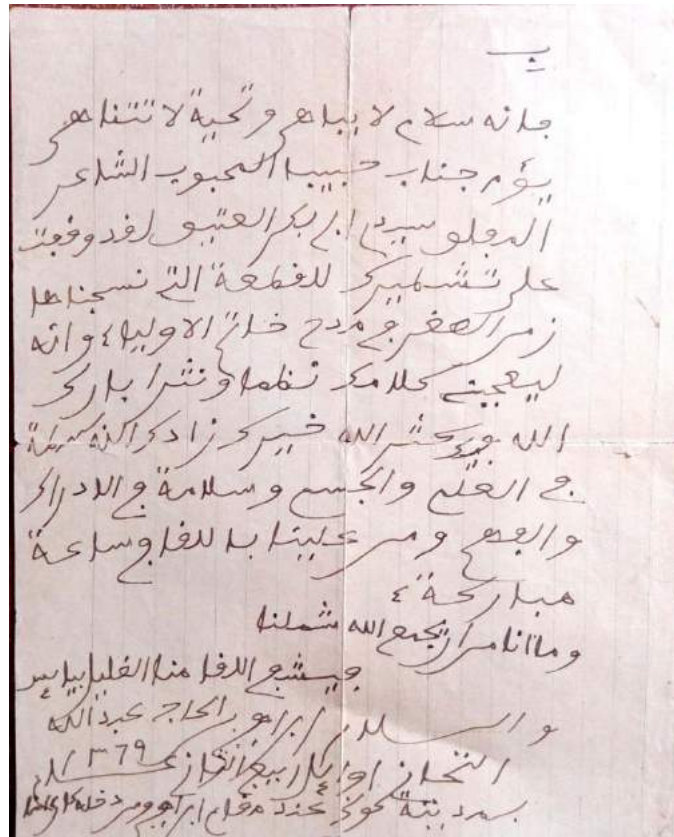 فإنه سلام لا يباهى وتحية لا تتناهى
يؤم جناب حبيبنا المحبوب الشاعر
المفلق سيدي ابي بكر العتيق لقد وقفت
على تشطيرك للقطعة التي نسجناها
زمن الصغر في مدح خاتم الاولياء وانه
ليعجبني كلامك نظما ونثرا بارك
الله فيك كثر الله خيرك زادك الله بسطة
في العلم والجسم وسلامة في الادراك
والفهم ومن علينا باللقا في ساعة
مباركة
وما انا من ان يجمع الله شملنا
فيشفي اللقا منا الغليل بيائس
والسلام ابراهيم بن الحاج عبد الله
التجاني اوائل ربيع الثاني ١٣٧٩
بمدينة كنو عند مقام ابراهيم ومن دخله كان ءامنا